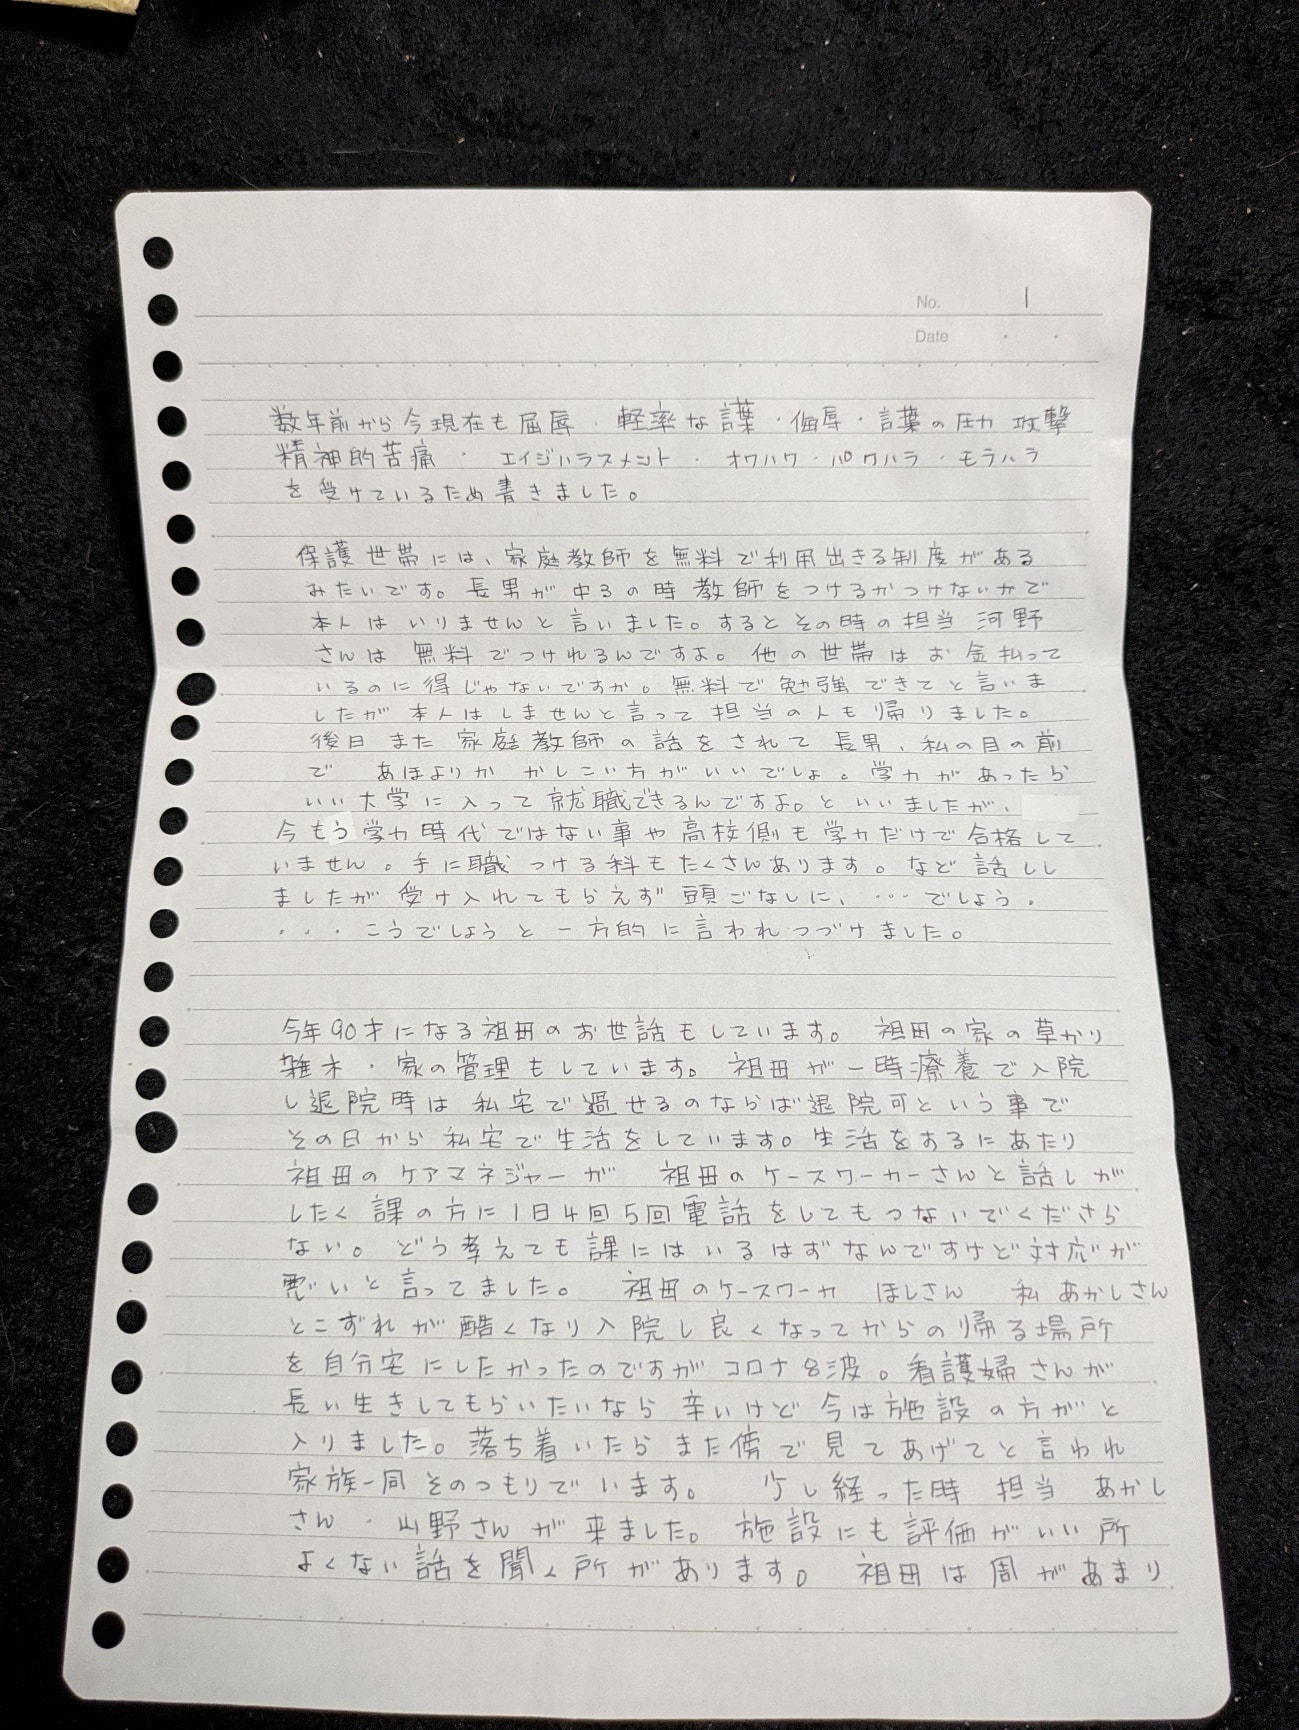 No. 1
Date
数年前から今現在も屈辱・軽率な言葉・侮辱・言葉の圧力 攻撃
精神的苦痛・エイジハラスメント・オワハワ・パワハラ・モラハラ
を受けているため書きました。
保護世帯には、家庭教師を無料で利用出きる制度がある
みたいです。長男が中3の時教師をつけるかつけないかで
本人はいりませんと言いました。するとその時の担当 河野
さんは 無料でつけれるんですよ。他の世帯はお金払って
いるのに得じゃないですか。無料で勉強できてと言いま
したが本人はしませんと言って担当の人も帰りました。
後日また 家庭教師の話をされて長男、私の目の前
で あほよりか かしこい方がいいでしょ。学力があったら
いい大学に入って就職できるんですよ。といいましたが、
今もう学力時代ではない事や高校側も学力だけで合格して
いません。手に職つける科もたくさんあります。など話しし
ましたが受け入れてもらえず頭ごなしに、…でしょう.
...こうでしょうと一方的に言われつづけました。
今年90才になる祖母のお世話もしています。祖母の家の草かり
雑木・家の管理もしています。祖母が一時療養で入院
し退院時は私宅で過せるのならば退院可という事で
その日から私宅で生活をしています。生活をするにあたり
祖母のケアマネジャーが 祖母のケースワーカーさんと話しが
したく課の方に1日4回5回電話をしてもつないでくださら
ない。どう考えても課にはいるはずなんですけど対応が
悪いと言ってました。 祖母のケースワーカ ほしさん 私 あかしさん
とこずれが酷くなり入院し良くなってからの帰る場所
を自分宅にしたかったのですがコロナ8波。看護婦さんが
長い生きしてもらいたいなら辛いけど今は施設の方がと
入りました。落ち着いたらまた傍で見てあげてと言われ
家族一同そのつもりでいます。 少し経った時 担当 あかし
さん・山野さんが来ました。施設にも評価がいい所
よくない話を聞く所があります。 祖母は周があまり